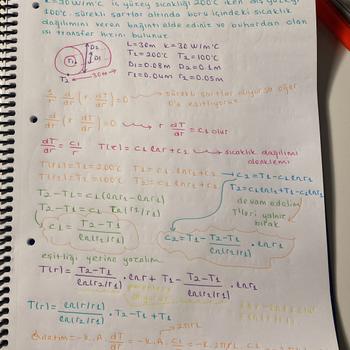 k=30W/m°C iç yüzey sıcaklığı 200°C iken dış yüzey
100°C. sürekli şartlar altında boru içindeki sıcaklık
dağılımını veren bağıntı elde ediniz ve buhardan olan
ısı transfer hızını bulunuz.
D2
D1
r1
T2
30m
L=30m k=30W/m°C
T1=200°C T2=100°C
D1=0.08m D2=0.1m
r1=0.04m r2=0.05m
d/dr (r. dT/dr)=0 → sürekli şartlar diyorsa eğer
0'a eşitliyoruz
d/dr (r dT/dr)=0 → r dT/dr = c1 olur
dT/dr = c1/r T(r)=c1 lnr+c2 → sıcaklık dağılımı
denklemi
T(r1)=T1=200°C T1=c1 lnr1+c2 → c2=T1-c1lnr1
T(r2)=T2=100°C T2=c1 lnr2+c2
T2=c1lnr2+T1-c1lnr1
T2-T1=c1(lnr2-lnr1)
devam edelim
T2-T1=c1 ln(r2/r1)
T'leri yalnız
bırak
c1 = T2-T1 / ln(r2/r1)
c2=T1- T2-T1 / ln(r2/r1) . lnr1
eşitliği yerine yazalım
T(r)= T2-T1 / ln(r2/r1) . lnr + T1 - T2-T1 / ln(r2/r1) . lnr1
T(r)= ln(r/r1) / ln(r2/r1) . T2-T1 + T1
= -k.A. dT/dr = -k.A. c1/r = -k.2πrL.